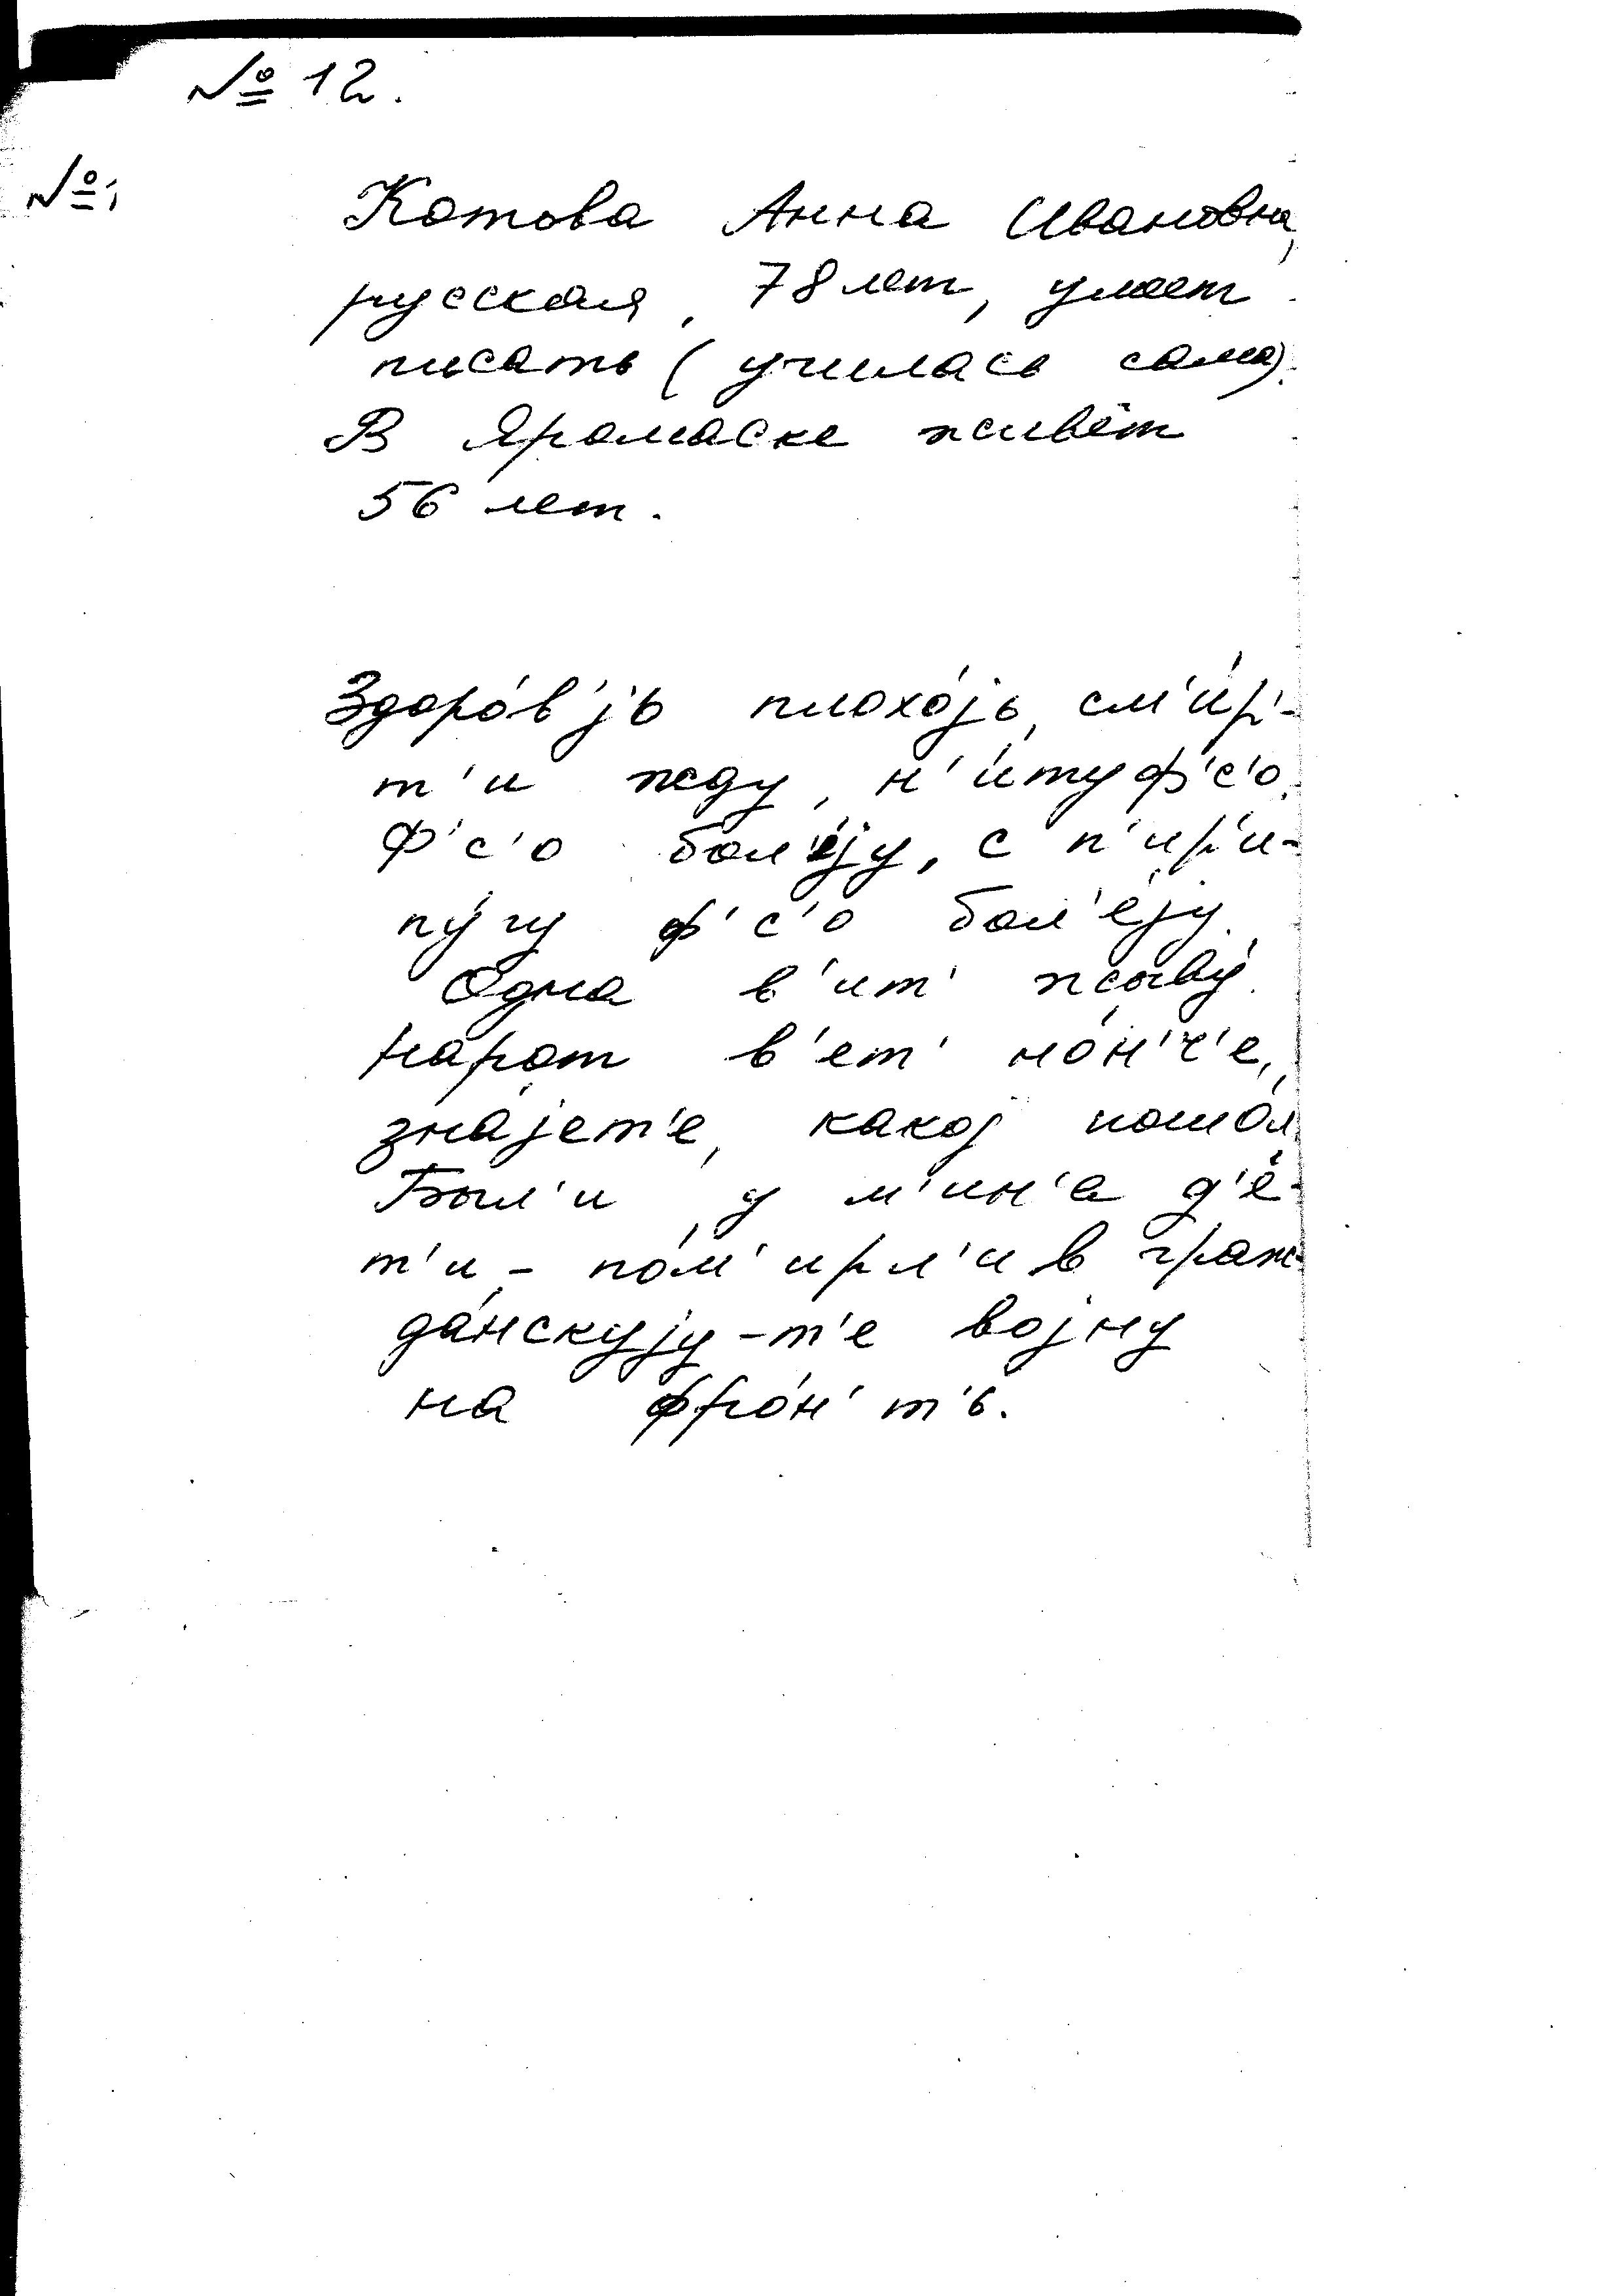 № 12.
№1
Котова Анна Ивановна,
русская, 78 лет, умеет
писать (училась сама).
В Яромаске живёт
56 лет.
Здоро́в'jь плохо́jь, см'и́р'-
т'и жду, н'и́ту ф'с'о.
Ф'с'о бол'е́jу, с п'ир'и-
пу́гу ф'с'о бол'е́jу.
Одна в'ит' жыву́.
На́рот в'ет' но́н'ч'е,
зна́jет'е, какоj пошо́л.
Был'и у м'ин'а д'е́-
т'и - по́м'ирл'и в граж-
да́нскуjу-т'е воjну
на фро́н'т'ь.